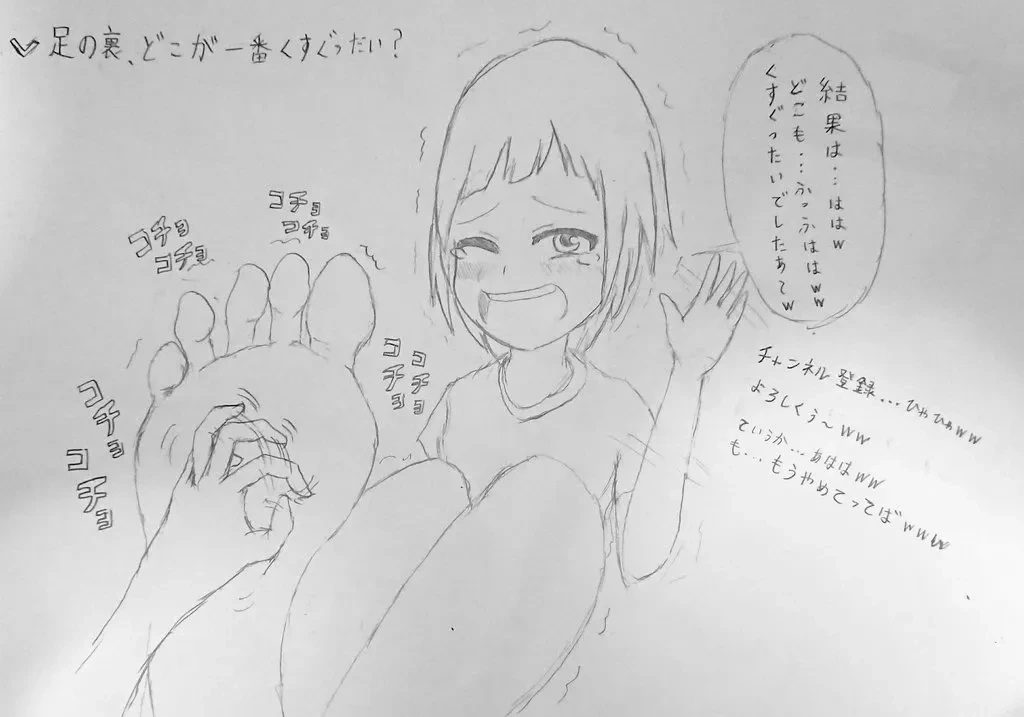 足の裏、どこが一番くすぐったい？
結果は…ははw
どこも…ふっふははww
くすぐったいでしたあてw
コチョ
コチョ
コチョ
コチョ
コチョ
コチョ
コチョ
コチョ
チャンネル登録…ひゃひゃww
よろしくぅ～ww
ていうか…あははww
も…もうやめてってばwww